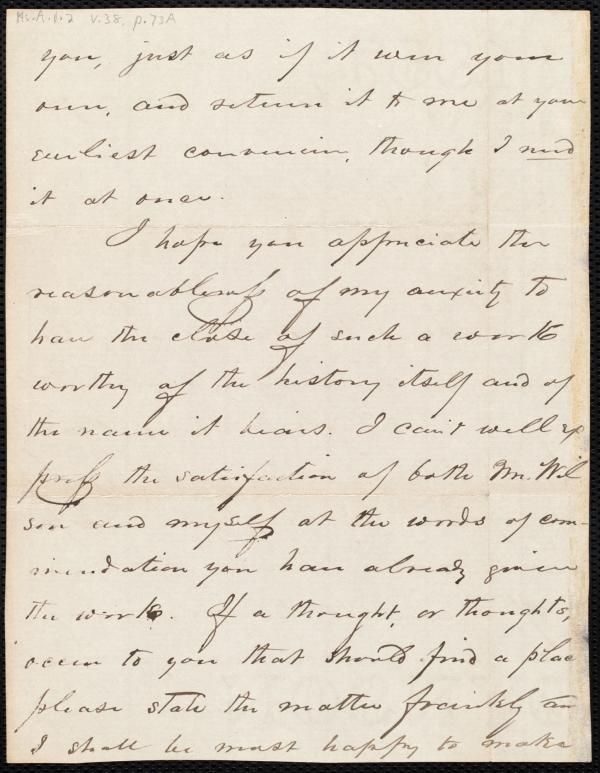 Ms.A.1.2 v.38, p.73A
you, just as if it were your
own, and return it to me at your
earliest convenience, though I need
it at once.
I hope you appreciate the
reasonableness of my anxiety to
have the close of such a work
worthy of the history itself and of
the name it bears. I can't well ex
press the satisfaction of both Mr. Wil
son and myself at the words of com-
mendation you have already given
the work. If a thought, or thoughts,
occur to you that should find a place
please state the matter frankly and
I shall be most happy to make